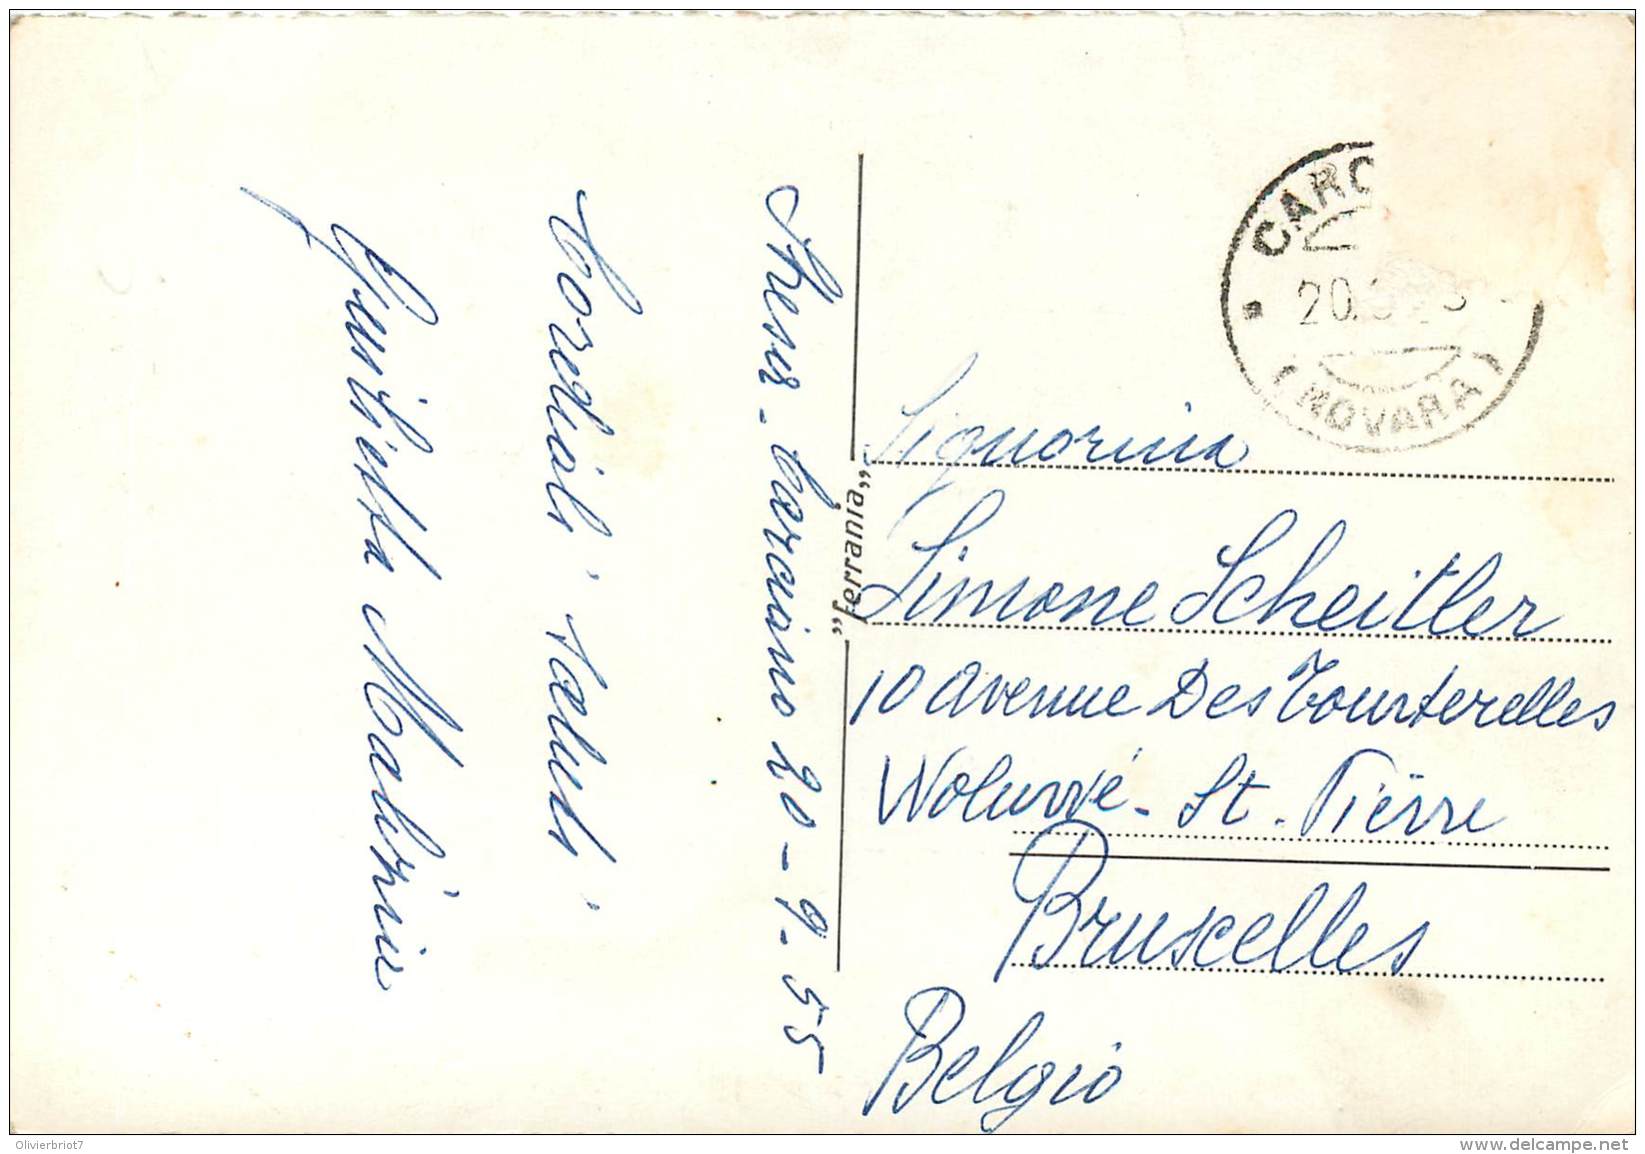 Stresa - Carciano 20-9-55
Cordiali saluti
Giuditta
"ferrania"
CARC
20.
(NOVARA)
Signorina
Simone Scheitler
10 Avenue Des Tourterelles
Woluwé - St. Pïërre
Bruxelles
Belgio
Olivierbriot7
delcampe.net